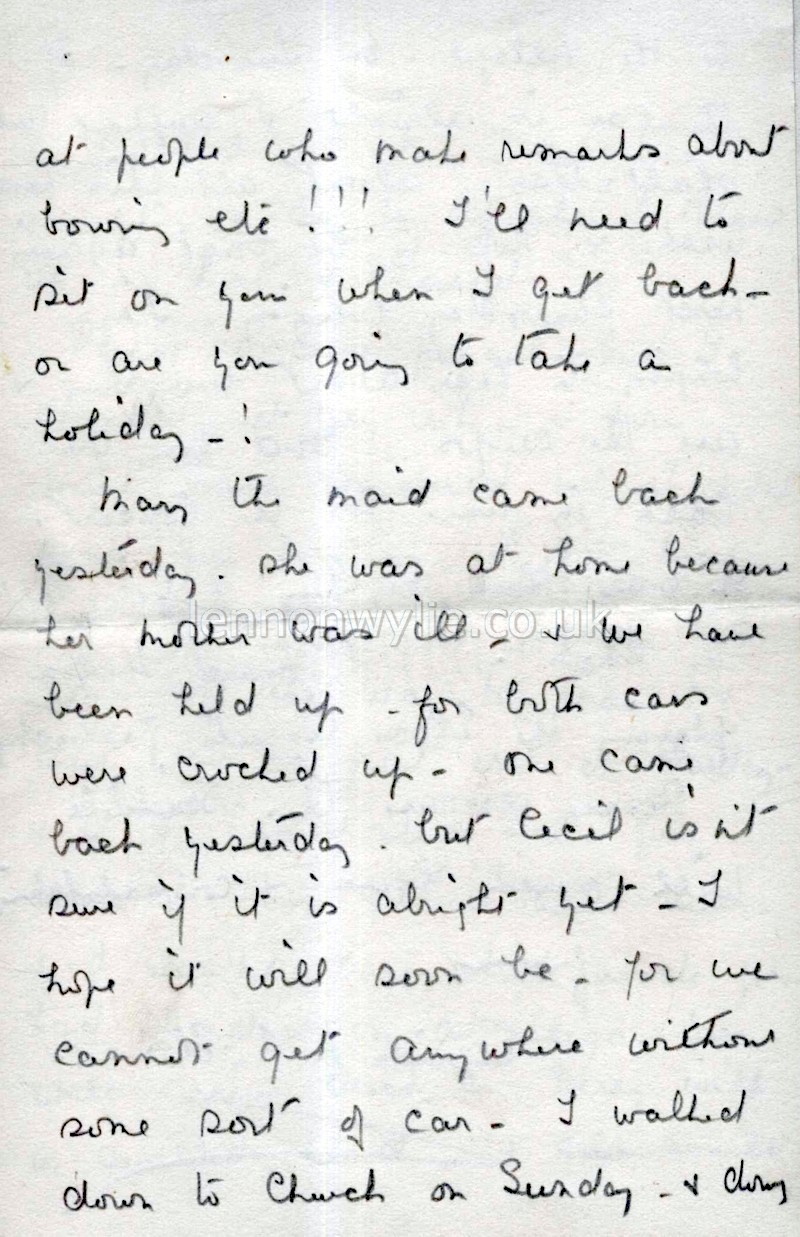 at people who make remarks about
bowing etc !!! I'll need to
sit on you when I get back -
or are you going to take a
holiday - !
Mary the maid came back
yesterday. She was at home because
lennonwylie.co.uk
her mother was ill - & we have
been held up - for both cars
were crocked up - one came
back yesterday. but Cecil isn't
sure if it is alright yet - I
hope it will soon be - for we
cannot get anywhere without
some sort of car - I walked
down to Church on Sunday - &